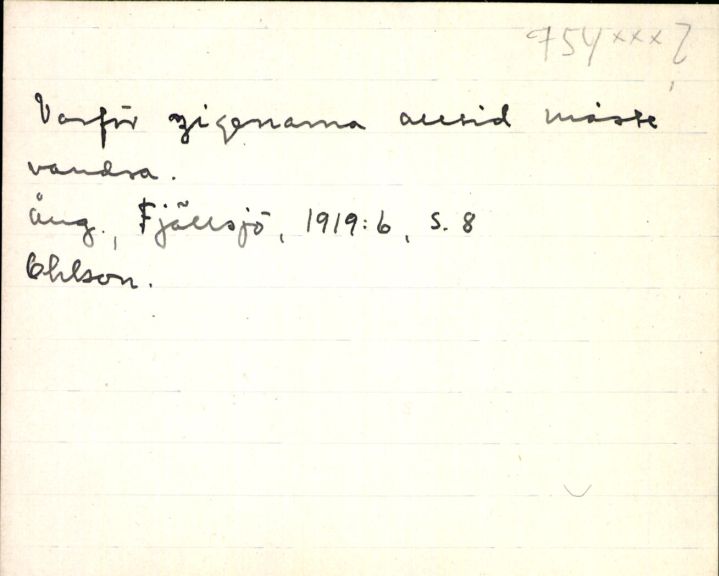 754xxx?
Varför zigenarna alltid måste
vandra.
Ång., Fjällsjö, 1919:6, s. 8
Ohlson.